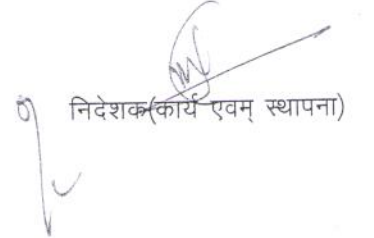 निदेशक(कार्य एवम् स्थापना)